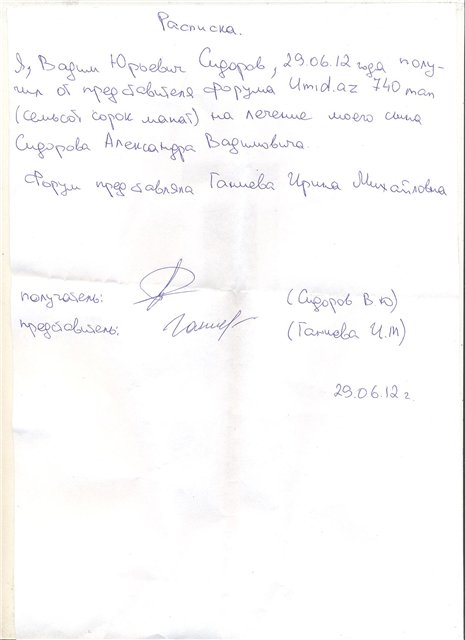 Расписка.
Я, Вадим Юрьевич Сидоров, 29.06.12 года полу-
чил от представителя форума Umid.az 740 man
(семьсот сорок манат) на лечение моего сына
Сидорова Александра Вадимовича.
Форум представляла Ганиева Ирина Михайловна
получатель: (Сидоров В Ю)
представитель: Ганиев (Ганиева И.М)
29.06.12 г.